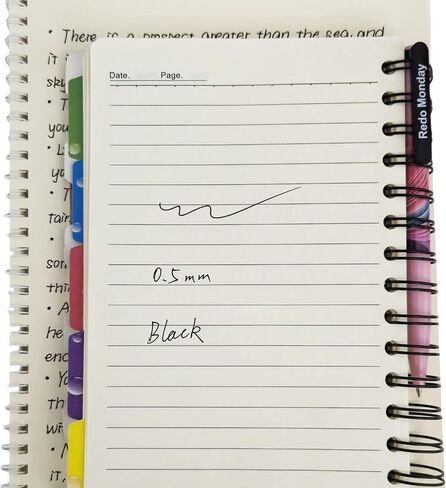 • There is a prospect greater than the sea, and
it
sky
• T
you
• L
yo
• T
tain
•
son
thi
• A
he
enc
• Yo
th
wi
•
it,
Date. Page.
0.5mm
Black
Redo Monday